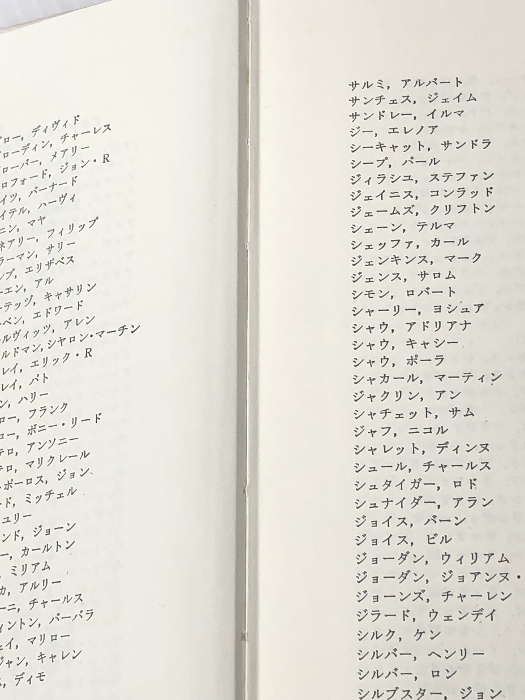 ロー, ディヴィド
ローディン, チャーレス
ローバー, メアリー
ロフォード, ジョン・R
イツ, バーナード
イテル, ハーヴィ
ニン, マヤ
ネアリー, フィリップ
ラーマン, サリー
ンプ, エリザベス
ーエン, アル
ーテッジ, キャサリン
ーベン, エドワード
ールヴィッツ, アレン
ールドマン, シャロン・マーチン
レイ, エリック・R
レイ, パト
ン, ハリー
ロー, フランク
ロー, ボニー・リード
テロ, アンソニー
テロ, マリクレール
・ポーロス, ジョン
ード, ミッチェル
ユリー
ンド, ジョーン
ー, カールトン
, ミリアム
カ, アルリー
ーニ, チャールス
ィントン, バーバラ
ェイ, マリロー
ジャン, キャレン
, ディモ
サルミ, アルバート
サンチェス, ジェイム
サンドレー, イルマ
ジー, エレノア
シーキャット, サンドラ
シープ, パール
ジィラシユ, ステファン
ジェイニス, コンラッド
ジェームズ, クリフトン
シェーン, テルマ
シェッファ, カール
ジェンキンス, マーク
ジェンス, サロム
シモン, ロバート
シャーリー, ヨシュア
シャウ, アドリアナ
シャウ, キャシー
シャウ, ポーラ
シャカール, マーティン
ジャクリン, アン
シャチェット, サム
ジャフ, ニコル
シャレット, ディンヌ
シュール, チャールス
シュタイガー, ロド
シュナイダー, アラン
ジョイス, バーン
ジョイス, ビル
ジョーダン, ウィリアム
ジョーダン, ジョアンヌ・
ジョーンズ, チャーレン
ジラード, ウェンデイ
シルク, ケン
シルバー, ヘンリー
シルバー, ロン
シルブスター, ジョン